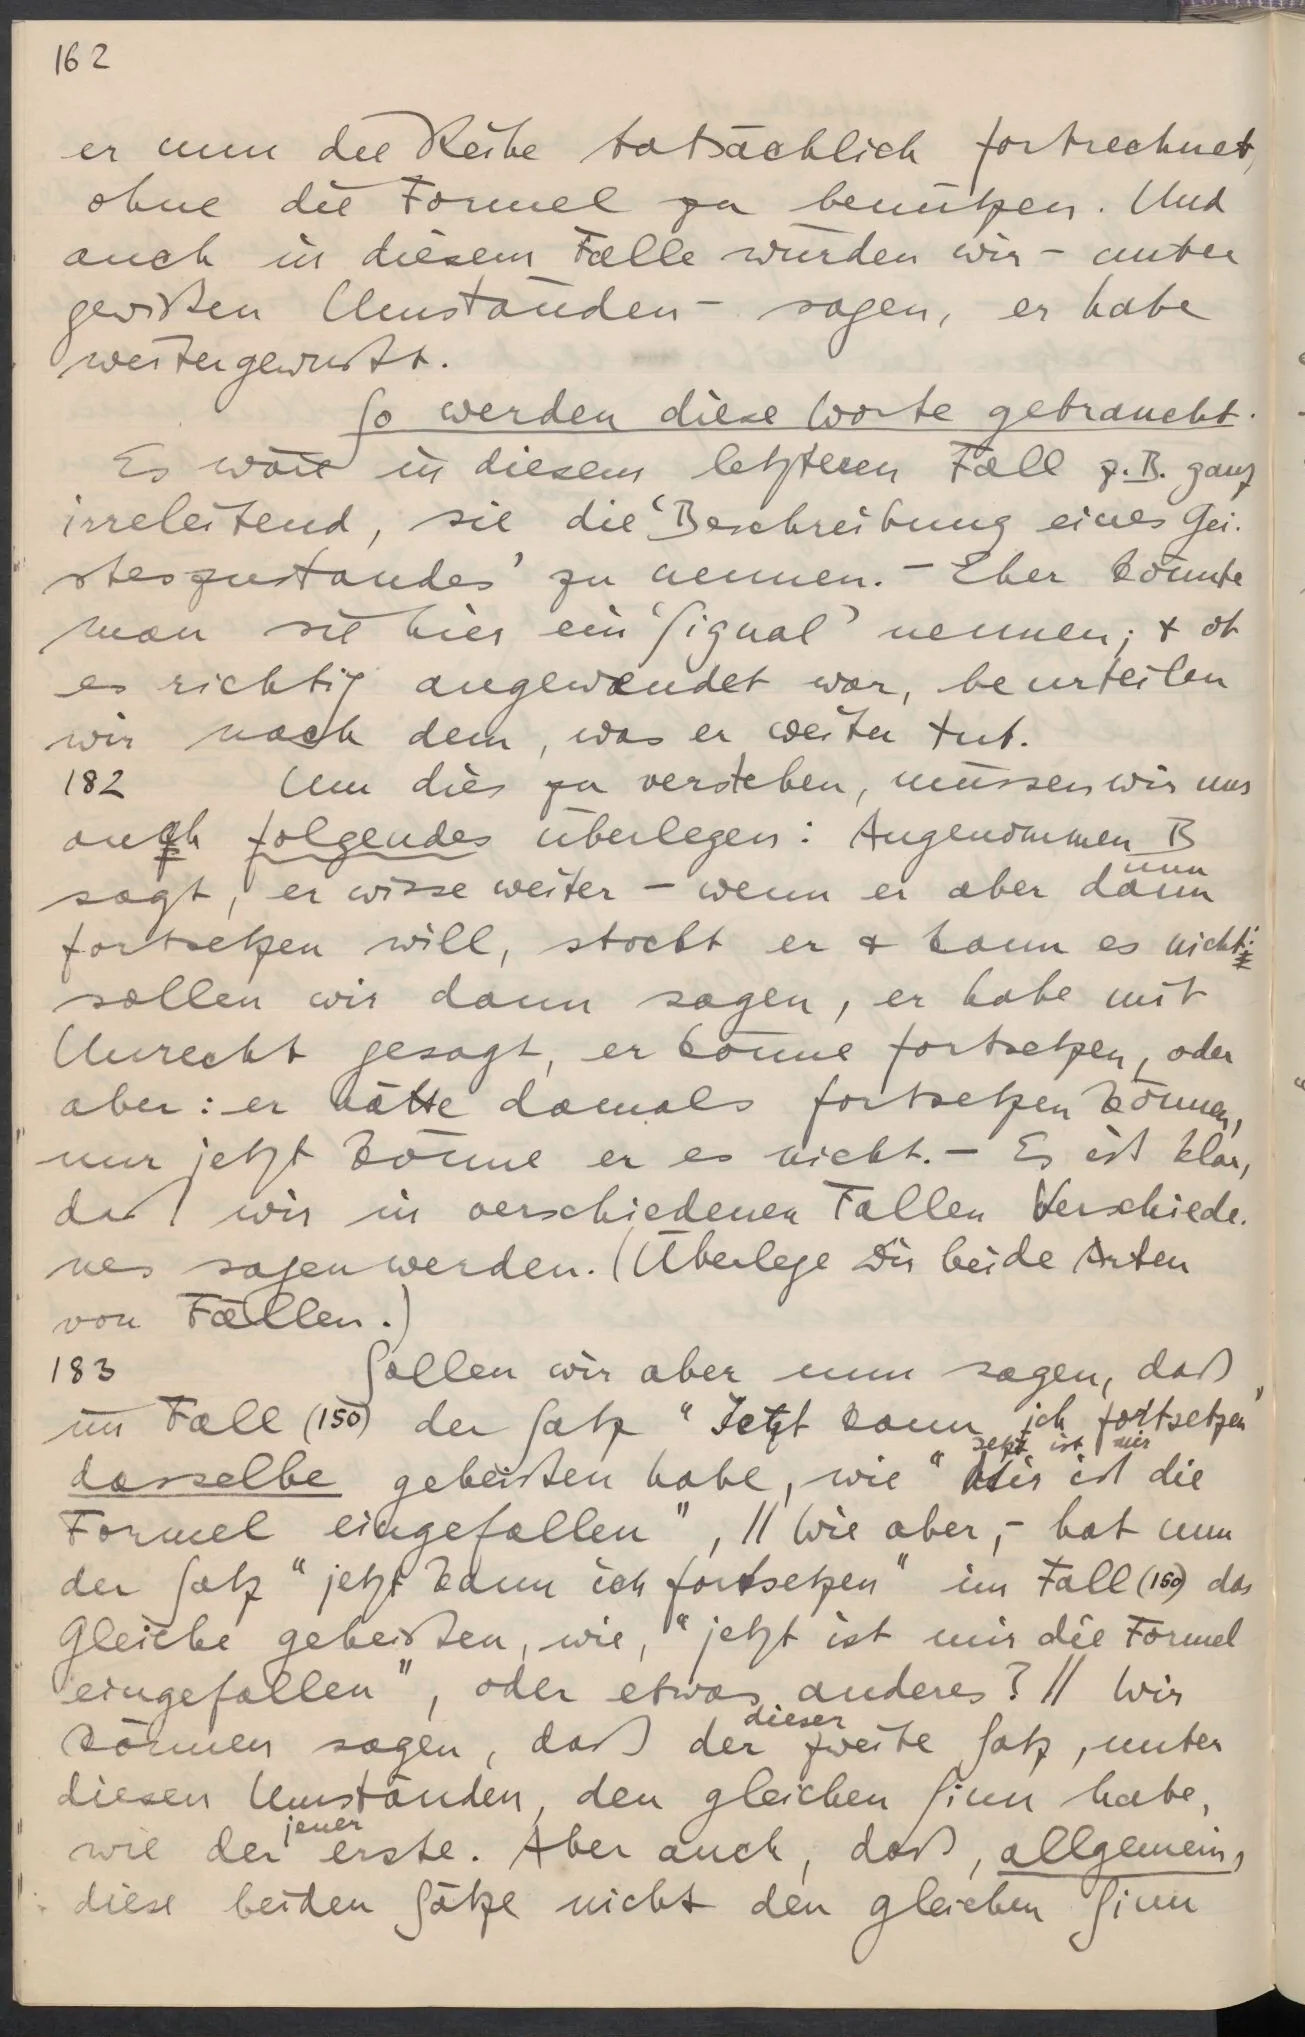 162
er nun die Reihe tatsächlich fortrechnet,
ohne die Formel zu benützen. Und
auch in diesem Falle würden wir – unter
gewißen Umständen – sagen, er habe
weitergewußt.
So werden diese Worte gebraucht.
Es wäre in diesem letzteren Fall z.B. ganz
irreleitend, sie die ‘Beschreibung eines Gei-
steszustandes’ zu nennen. – Eher könnte
man sie hier ein ‘Signal’ nennen; & ob
es richtig angewendet war, beurteilen
wir nach dem, was er weiter tut.
182 Um dies zu verstehen, müssen wir uns
auch folgendes überlegen: Angenommen B
nun
sagt, er wisse weiter – wenn er aber dann
fortsetzen will, stockt er & kann es nicht:
sollen wir dann sagen, er habe mit
Unrecht gesagt, er könne fortsetzen, oder
aber: er hätte damals fortsetzen können,
nur jetzt könne er es nicht. – Es ist klar,
daß wir in verschiedenen Fällen Verschiede-
nes sagen werden. (Überlege Dir beide Arten
von Fällen.)
183 Sollen wir aber nun sagen, daß
im Fall (150) der Satz “Jetzt kann ich fortsetzen”
jetzt ist mir
dasselbe geheißen habe, wie “Mir ist die
Formel eingefallen”, // Wie aber, – hat nun
der Satz “jetzt kann ich fortsetzen” im Fall (150) das
Gleiche geheißen, wie, “jetzt ist mir die Formel
eingefallen”, oder etwas anderes? // Wir
dieser
können sagen, daß der zweite Satz, unter
diesen Umständen, den gleichen Sinn habe,
jener
wie der erste. Aber auch, daß, allgemein,
diese beiden Sätze nicht den gleichen Sinn